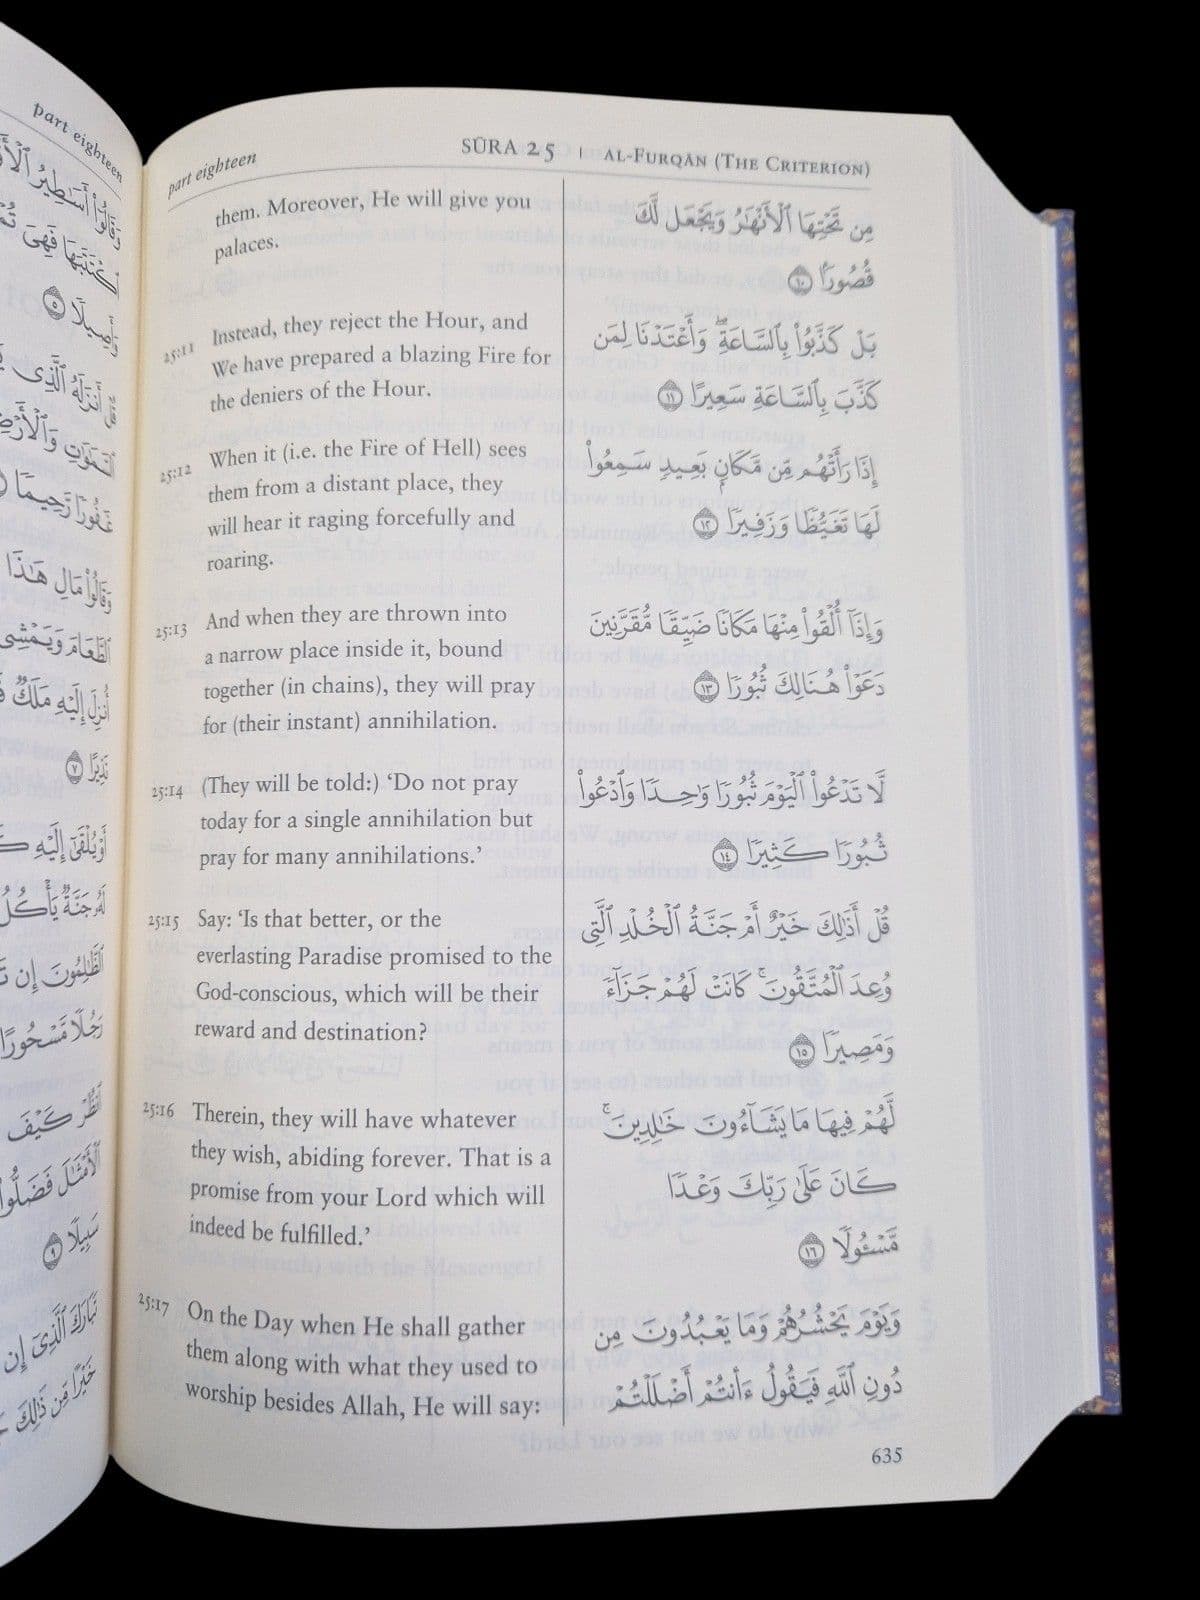 part eighteen
وَقَالُوٓا۟ أَسَـٰطِيرُ
فَهِىَ
أَصِيلًا ٥
أَنزَلَهُ ٱلَّذِى
ٱلسَّمَـٰوَٰتِ وَٱلْأَرْضِ
غَفُورًا رَّحِيمًا
وَقَالُوا۟ مَالِ هَـٰذَا
ٱلطَّعَامَ وَيَمْشِى
أُنزِلَ إِلَيْهِ مَلَكٌ
نَذِيرًا ٧
أَوْ يُلْقَىٰٓ إِلَيْهِ
لَهُۥ جَنَّةٌ يَأْكُلُ
ٱلظَّـٰلِمُونَ إِن
رَجُلًا مَّسْحُورًا
ٱنظُرْ كَيْفَ
ٱلْأَمْثَـٰلَ فَضَلُّوا۟
سَبِيلًا ٩
تَبَارَكَ ٱلَّذِىٓ إِن
خَيْرًا مِّن ذَٰلِكَ
part eighteen SŪRA 25 | AL-FURQĀN (THE CRITERION)
them. Moreover, He will give you
palaces.
25:11 Instead, they reject the Hour, and
We have prepared a blazing Fire for
the deniers of the Hour.
25:12 When it (i.e. the Fire of Hell) sees
them from a distant place, they
will hear it raging forcefully and
roaring.
25:13 And when they are thrown into
a narrow place inside it, bound
together (in chains), they will pray
for (their instant) annihilation.
25:14 (They will be told:) ‘Do not pray
today for a single annihilation but
pray for many annihilations.’
25:15 Say: ‘Is that better, or the
everlasting Paradise promised to the
God-conscious, which will be their
reward and destination?
25:16 Therein, they will have whatever
they wish, abiding forever. That is a
promise from your Lord which will
indeed be fulfilled.’
25:17 On the Day when He shall gather
them along with what they used to
worship besides Allah, He will say:
مِن تَحْتِهَا ٱلْأَنْهَـٰرُ وَيَجْعَل لَّكَ
قُصُورًۢا ١٠
بَلْ كَذَّبُوا۟ بِٱلسَّاعَةِ ۖ وَأَعْتَدْنَا لِمَن
كَذَّبَ بِٱلسَّاعَةِ سَعِيرًا ١١
إِذَا رَأَتْهُم مِّن مَّكَانٍۭ بَعِيدٍ سَمِعُوا۟
لَهَا تَغَيُّظًا وَزَفِيرًا ١٢
وَإِذَآ أُلْقُوا۟ مِنْهَا مَكَانًا ضَيِّقًا مُّقَرَّنِينَ
دَعَوْا۟ هُنَالِكَ ثُبُورًا ١٣
لَّا تَدْعُوا۟ ٱلْيَوْمَ ثُبُورًا وَٰحِدًا وَٱدْعُوا۟
ثُبُورًا كَثِيرًا ١٤
قُلْ أَذَٰلِكَ خَيْرٌ أَمْ جَنَّةُ ٱلْخُلْدِ ٱلَّتِى
وُعِدَ ٱلْمُتَّقُونَ ۚ كَانَتْ لَهُمْ جَزَآءً
وَمَصِيرًا ١٥
لَّهُمْ فِيهَا مَا يَشَآءُونَ خَـٰلِدِينَ ۚ
كَانَ عَلَىٰ رَبِّكَ وَعْدًا
مَّسْـُٔولًا ١٦
وَيَوْمَ يَحْشُرُهُمْ وَمَا يَعْبُدُونَ مِن
دُونِ ٱللَّهِ فَيَقُولُ ءَأَنتُمْ أَضْلَلْتُمْ
635